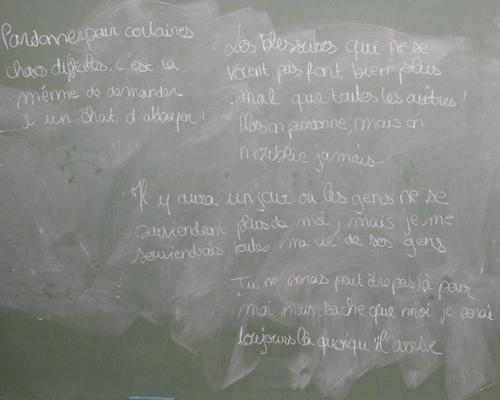 Pardonner pour certaines
choses difficiles, c'est la
même de demander
à un chat d'aboyer!
Les blessures qui ne se
voient pas font bien plus
mal que toutes les autres!
Alors on pardonne, mais on
n'oublie jamais...
Il y aura un jour ou les gens ne se
souviendront plus de moi, mais je me
souviendrais toute ma vie de ses gens
Tu ne seras peut être pas là pour
moi mais sache que moi je serais
toujours là quoiqu'il arrive